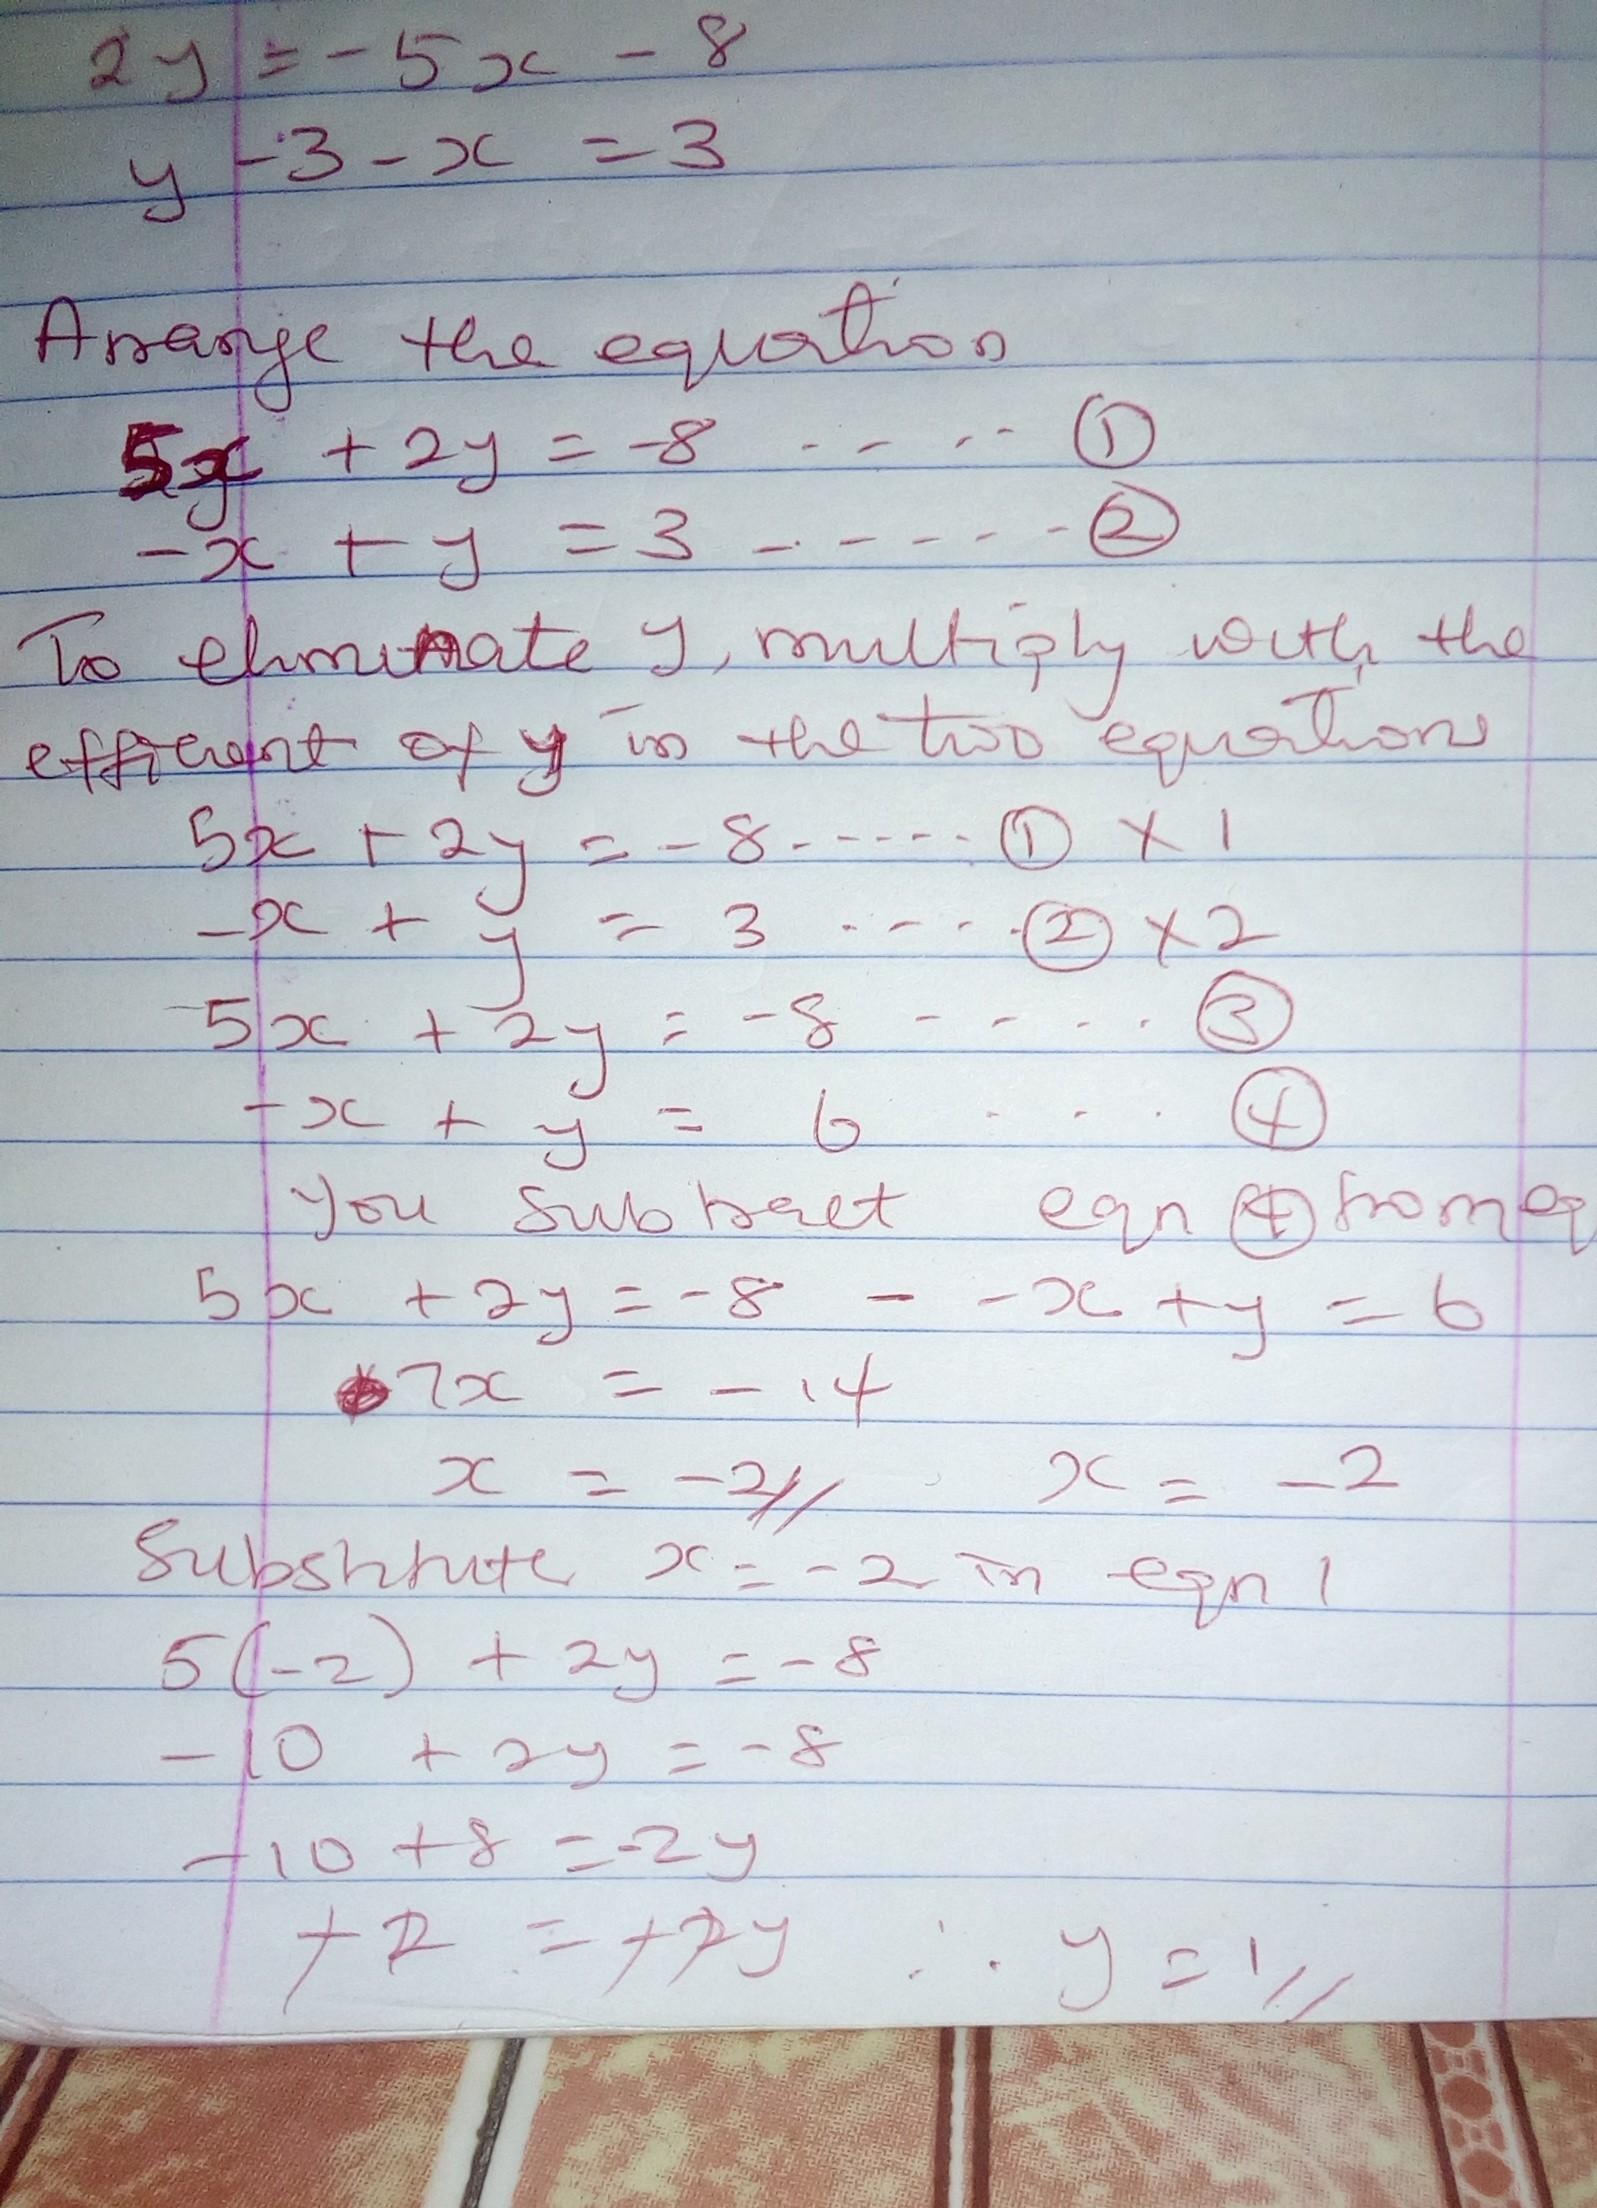 2y = -5x - 8
y - 3 - x = 3
Arrange the equation
5x + 2y = -8 ---- ①
-x + y = 3 ------ ②
To eliminate y, multiply with the
efficient of y in the two equations
5x + 2y = -8 ----- ① × 1
-x + y = 3 ---- ② × 2
5x + 2y = -8 ---- ③
-x + y = 6 ... ④
You Subtract eqn ④ from eq
5x + 2y = -8 - -x + y = 6
7x = -14
x = -2// x = -2
Substitute x = -2 in eqn 1
5(-2) + 2y = -8
-10 + 2y = -8
-10 + 8 = -2y
+2 = +2y ∴ y = 1//